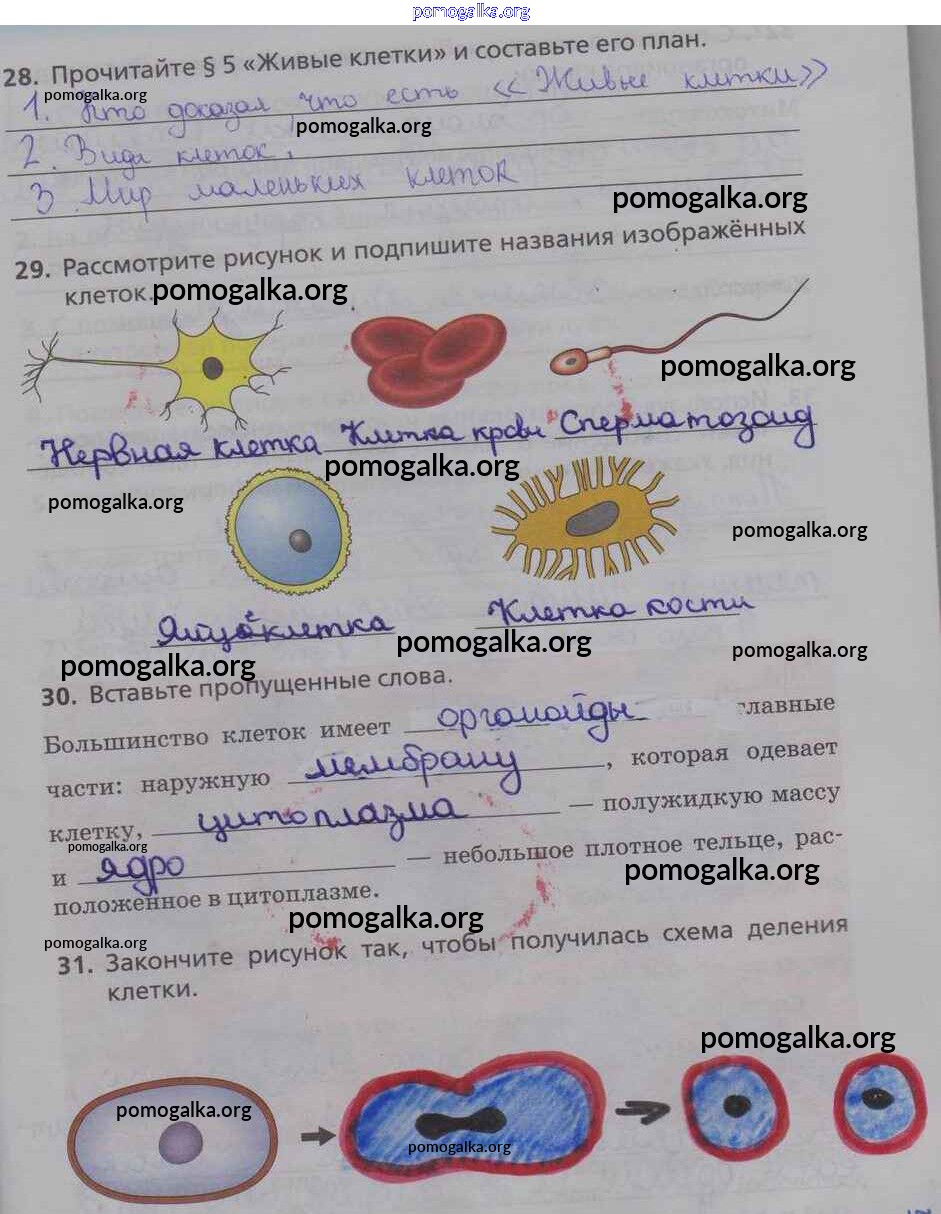 pomogalka.org
28. Прочитайте § 5 «Живые клетки» и составьте его план.
1. Кто доказал, что есть «Живые клетки»
pomogalka.org
pomogalka.org
2. Виды клеток.
3 Мир маленьких клеток
pomogalka.org
29. Рассмотрите рисунок и подпишите названия изображённых
клеток.
pomogalka.org
pomogalka.org
Нервная клетка Клетка крови Сперматозоид
pomogalka.org
pomogalka.org
pomogalka.org
Яйцеклетка Клетка кости
pomogalka.org
pomogalka.org
pomogalka.org
30. Вставьте пропущенные слова.
Большинство клеток имеет органойды главные
части: наружную мембрану, которая одевает
клетку, цитоплазма — полужидкую массу
pomogalka.org
и ядро — небольшое плотное тельце, рас-
pomogalka.org
положенное в цитоплазме.
pomogalka.org
pomogalka.org
31. Закончите рисунок так, чтобы получилась схема деления
клетки.
pomogalka.org
pomogalka.org
pomogalka.org